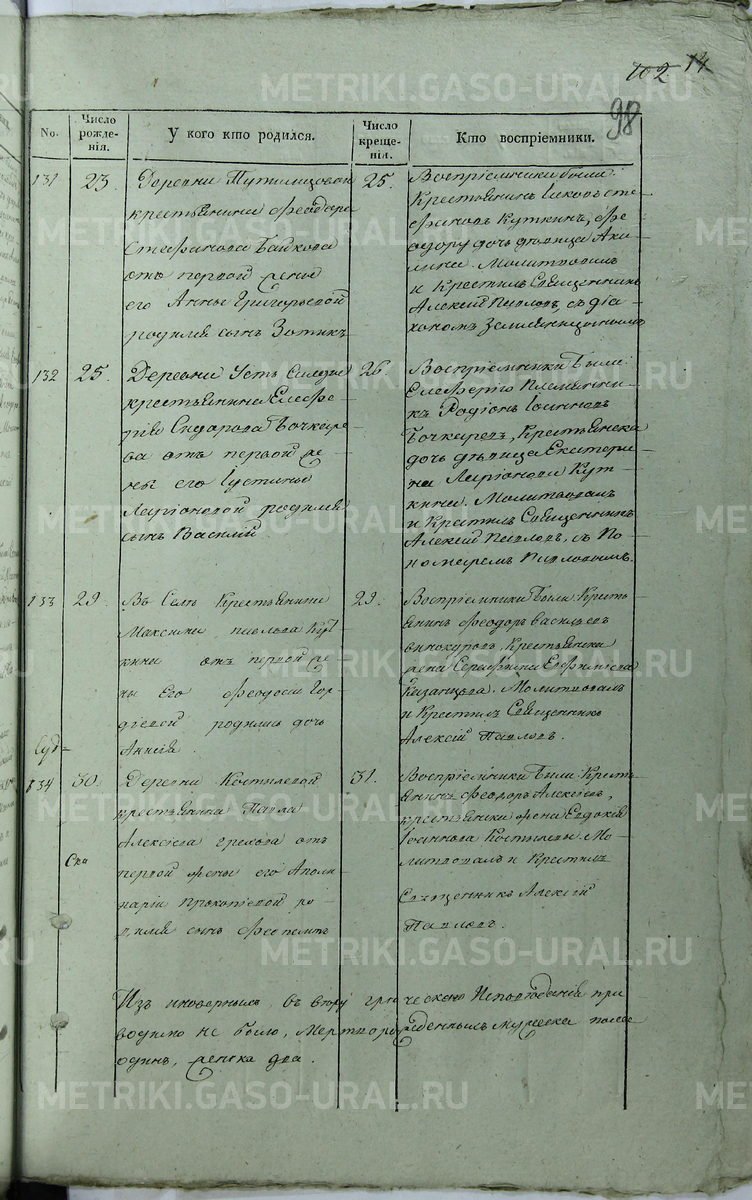 102 14
98
No.
Число рожде-нія.
У кого кто родился.
Число креще-нія.
Кто воспріемники.
131
23.
Деревни
крестьянина Феодора
Стефанова Байкова
отъ первой жены
его Анны Григорьевой
родился сынъ Зотикъ
25.
Воспріемники были:
Крестьянинъ Іаковъ Сте-
фановъ Куткинъ, Фе-
адору дочь дѣвица Аку-
лина. Молитвовалъ
и Крестилъ Священникъ
Алексій Павловъ, съ діа-
кономъ Земляницынымъ
132
25.
Деревни Усть
крестьянина Елеѳе-
рія Сидарова Бочкаре-
ва отъ первой же-
ны его Іустины
Ларіоновой родился
сынъ Василій
26.
Воспріемники были:
Елеѳерію Племянни-
къ Родіонъ Іоанновъ
Бочкаревъ, Крестьянска
дочь дѣвица Екатери-
на Ларіонова Кут-
кина. Молитвовалъ
и Крестилъ Священникъ
Алексій Павловъ, съ По-
номаремъ Павловымъ.
133
29.
Въ Селѣ Крестьянина
Максима Павлова Кут-
кина отъ первой же-
ны Его Феодосіи Гор-
діевой родилась дочь
Анисія.
29.
Воспріемники были: Кресть-
янинъ Феодоръ Васильевъ
Винокуровъ, Крестьянска
жена Серафима Евфиміева
Казанцова. Молитвовалъ
и Крестилъ Священникъ
Алексій Павловъ.
134
30.
Деревни Костылевой
крестьянина Павла
Алексіева Грехова отъ
первой жены его Аполи-
наріи Прокопіевой ро-
дился сынъ Феопемптъ
31.
Воспріемники были: Кресть-
янинъ Феодоръ Алексіевъ,
крестьянска жена Евдокія
Іоаннова Костылевы Мо-
литвовалъ и Крестилъ
Священникъ Алексій
Павловъ.
Изъ иноверныхъ, въ вѣру греческаго Исповѣданія при
водимо не было, Мертворожденныхъ мужеска пола
одинъ, женска два.
METRIKI.GASO-URAL.RU